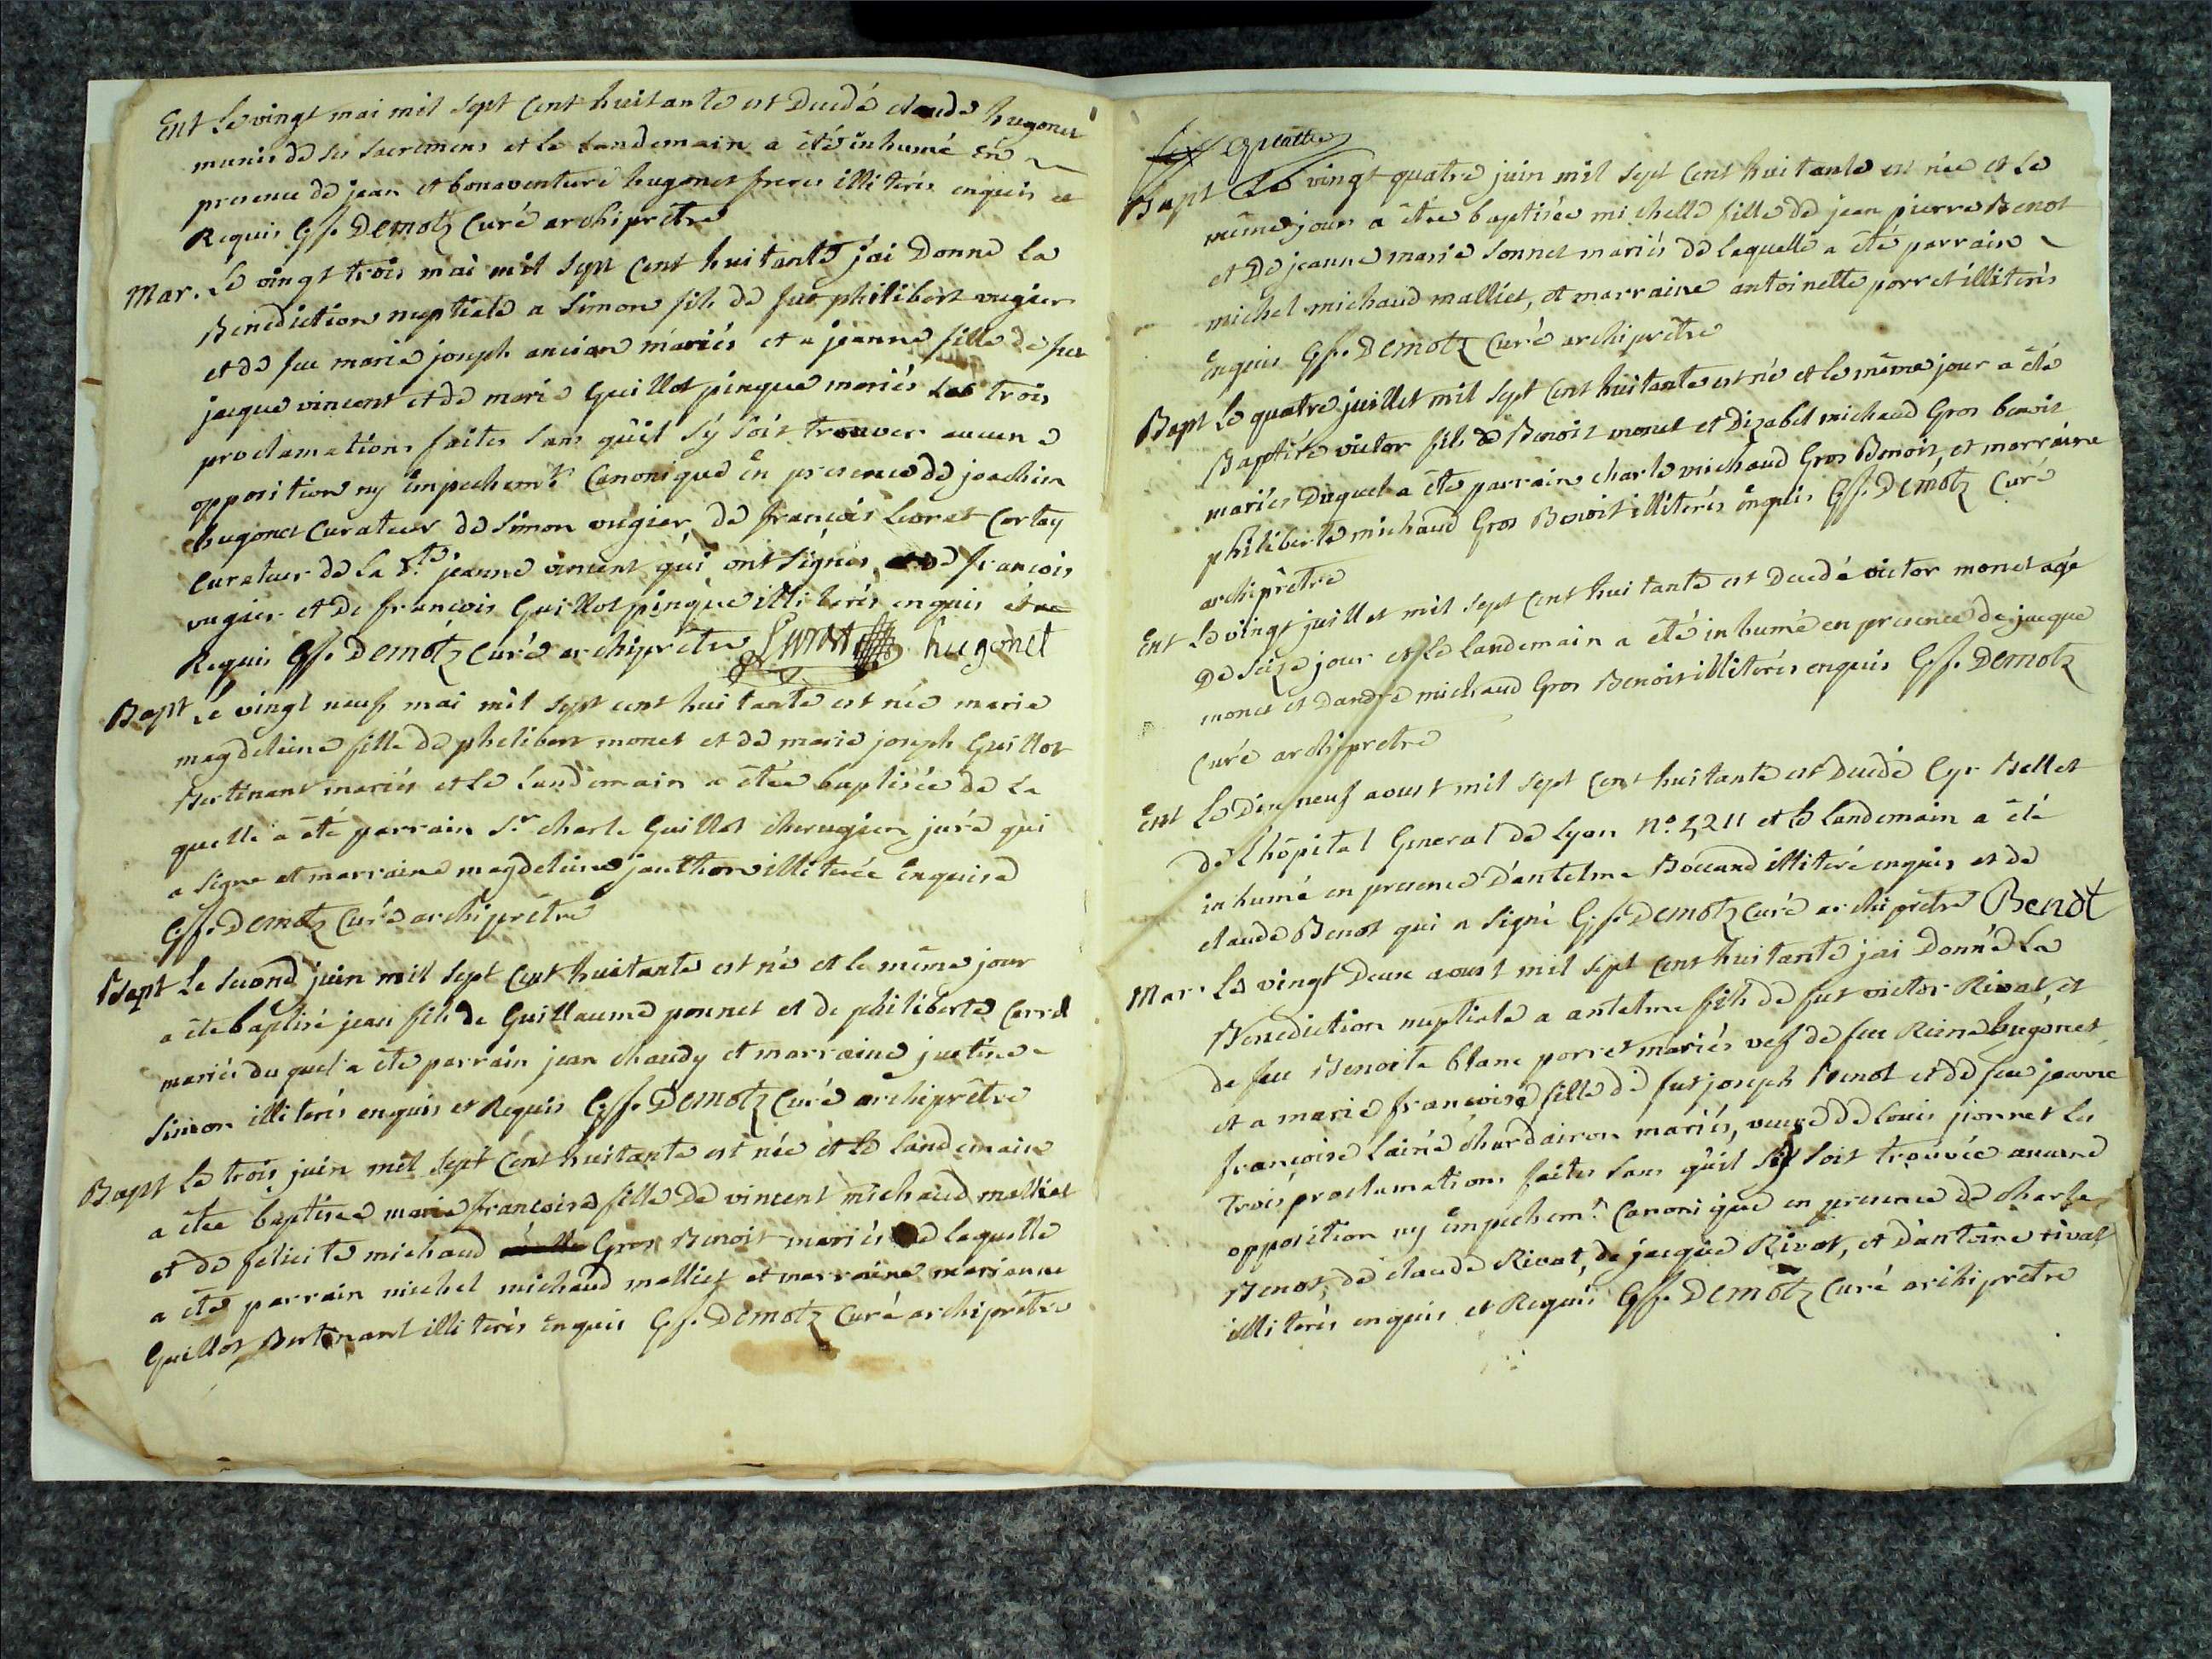 Ent Le vingt mai mil sept cent huitante est decedé claude hugonet
munis de ses sacremens et le landemain a été inhumé en
presence de jean et bonaventure hugonet freres illiterés enquis et
Requis Gf. Demotz curé archiprêtre
Mar. Le vingt trois mai mil sept cent huitante j'ai donné la
Benediction nuptiale a Simon fils de fut philibert vugier
et de feu marie joseph ancian mariés et a jeanne fille de fut
jacque vincent et de marie Guillot pingue mariés les trois
proclamations faites sans qu'il s'y soit trouver aucune
opposition ny empechemt. Canonique en presence de joachim
hugonet curateur de Simon vugier, de françois Lioret Cortay
curateur de la dte. jeanne vincent qui ont signés, de francois
vugier et de françois Guillot pingue illiterés enquis et
Requis Gf. Demotz curé archiprêtre hugonet
Bapt Le vingt neuf mai mil sept cent huitante est née marie
magdeleine fille de phelibert monet et de marie joseph Guillot
Bertinant mariés et le landemain a étée baptisée de la
quelle a été parrain Sr. charle Guillot chirugien juré qui
a signe et marraine magdeleine janthon illiterée enquise
Gf. Demotz curé archiprêtre
Bapt Le second juin mil sept cent huitante est né et le même jour
a été baptisé jean fils de Guillaume ponnet et de philiberte Carrel
mariés du quel a été parrain jean chaudy et marraine justine
Simon illiterés enquis et Requis Gf. Demotz curé archiprêtre
Bapt Le trois juin mil sept cent huitante est née et le landemain
a étée baptisée marie françoise fille de vincent michaud malliet
et de felicite michaud Gros Benoit mariés de laquelle
a été parrain michel michaud malliet et marraine marianne
Guillot Bertinant illiterés enquis Gf. Demotz curé archiprêtre
Bapt Le vingt quatre juin mil sept cent huitante est née et le
même jour a étée baptisée michelle fille de jean pierre Benot
et de jeanne marie Sonnet mariés de laquelle a été parrain
michel michaud malliet, et marraine antoinette porret illiterés
enquis Gf. Demotz curé archiprêtre
Bapt Le quatre juillet mil sept cent huitante est né et le même jour a été
Baptisé victor fils de Benoit monet et Dizabel michaud Gros benoit
mariés Duquel a été parrain charle michaud Gros Benoit, et marraine
philiberte michaud Gros Benoit illiterés enquis Gf. Demotz curé
archiprêtre
Ent Le vingt juillet mil sept cent huitante est decedé victor monet agé
de seize jour et le landemain a été inhumé en presence de jacque
monet et Dandré michaud Gros Benoit illiterés enquis Gf. Demotz
curé archiprêtre
Ent Le Dix neuf aoust mil sept cent huitante est decedé Cyr Bellet
de L'hôpital General de Lyon et le landemain a été
inhumé en presence d'antelme Boccand illiteré enquis et de
claude Benot qui a signé Gf. Demotz curé archiprêtre Benot
Mar. Le vingt Deux aoust mil sept cent huitante j'ai Donné La
Benediction nuptiale a antelme fils de fut victor Rivat, et
de feu Benoite blanc porret mariés vef de feu Reine hugonet
et a marie francoise fille de fut joseph Benot et de feu jeanne
françoise Lainé chardairon mariés, veuve de louis jionnet les
trois proclamations faites sans qu'il s'y soit trouvée aucune
opposition ny empechemt. Canonique en presence de charle
Benot, de claude Rivat, de jacque Rivat, et d'antoine rivat
illiterés enquis et Requis Gf. Demotz curé archiprêtre